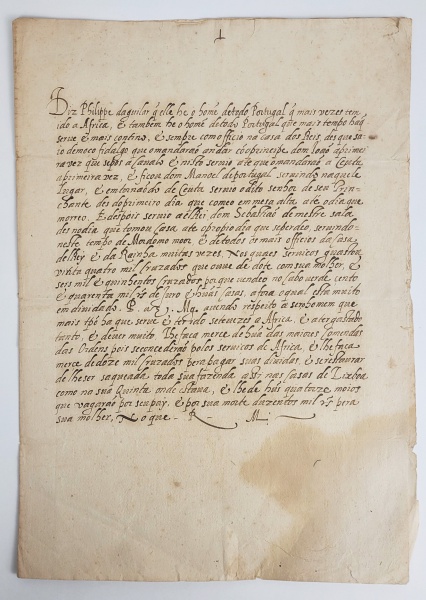 Diz Philippe daguilar q̃ elle he o homẽ de todo Portugal q̃ mais vezes tem
ido a Africa, E tambem he o homẽ de todo Portugal que mais tempo ha q̃
serve e mais contino, e sempre com officio na casa dos Reis, des que sa
io de moço fidalgo que o mandarão andar cõ o principe dom João a primei
ra vez que se pos a cavalo e nisto servio até que o mandarão a Ceuta
a primeira vez, e ficou dom Manoel de portugal servindo naquele
lugar, e en tornãdo de Ceuta servio o dito senhor de seu Trin-
chante des do primeiro dia que comeo em mesa alta ate o dia que
morreo. E despois servio a elRei dom Sebastião de mestre sala
des no dia que tomou casa até o propio dia que se perdeo, servindo
neste tempo de Moordomo moor e de todos os mais officios da casa
del Rey e da Rainha muitas vezes. Nos quaes serviços gastou
vinta quatro mil cruzados que ouve de dote com sua molher, e
seis mil e quinhentos cruzados por que vendeo no cabo verde cento
e quarenta mil rs de juro e suas casas, afora o qual está muito
endividado. P. a V. Mg. avendo respeito a ser homem que
mais tpõ ha que serve e ter ido sete vezes a Africa, e a ter gastado
tanto, e dever muito lhe faça merce de hũa das maiores Comendas
das Ordens pois se concederão polos serviços de Africa, e lhe faça
merce de doze mil cruzados pera pagar suas dividas, e se restaurar
de lhe ser saqueada toda sua fazenda assi nas casas de Lixboa
como na sua Quinta onde estava, e lhe de quatorze moios
que vagarão por seu pay, e por sua morte duzentos mil rs pera
sua molher, No que - R M